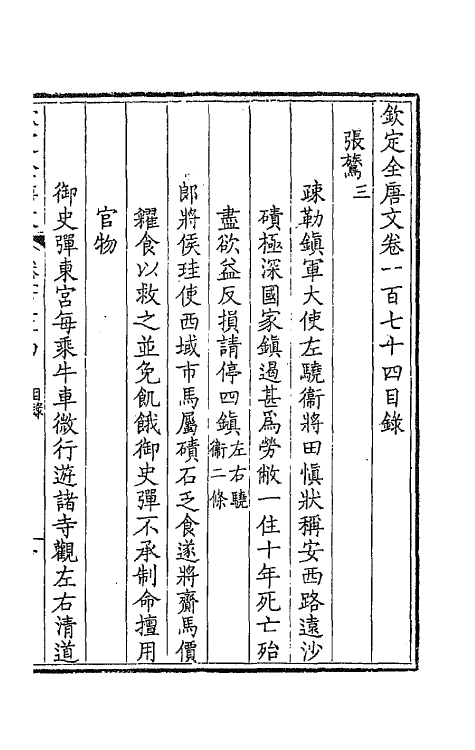 欽定全唐文卷一百七十四目錄
張鷟三
疎勒鎮軍大使左驍衞將田愼狀稱安西路遠沙
磧極深國家鎮過甚爲勞敝一住十年死亡殆
盡欲益反損請停四鎮左右驍衞二條
郎將侯珪使西域市馬屬磧石乏食遂將齎馬價
糴食以救之並免飢餓御史彈不承制命擅用
官物
御史彈東宮每乘牛車微行遊諸寺觀左右清道
目錄